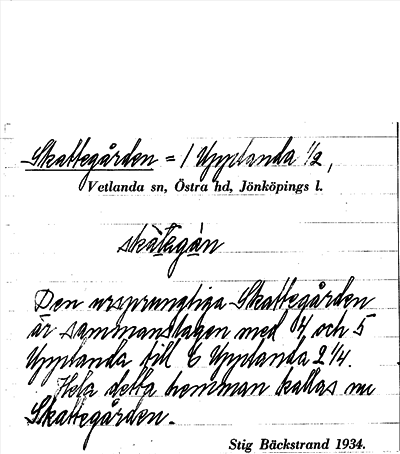 Skattegården = 1 Upplanda 1/2,
Vetlanda sn, Östra hd, Jönköpings l.
skàtagán
Den ursprungliga Skattegården
är sammanslagen med 4 och 5
Upplanda till 6 Upplanda 2 1/4.
Hela detta hemman kallas nu
Skattegården.
Stig Bäckstrand 1934.